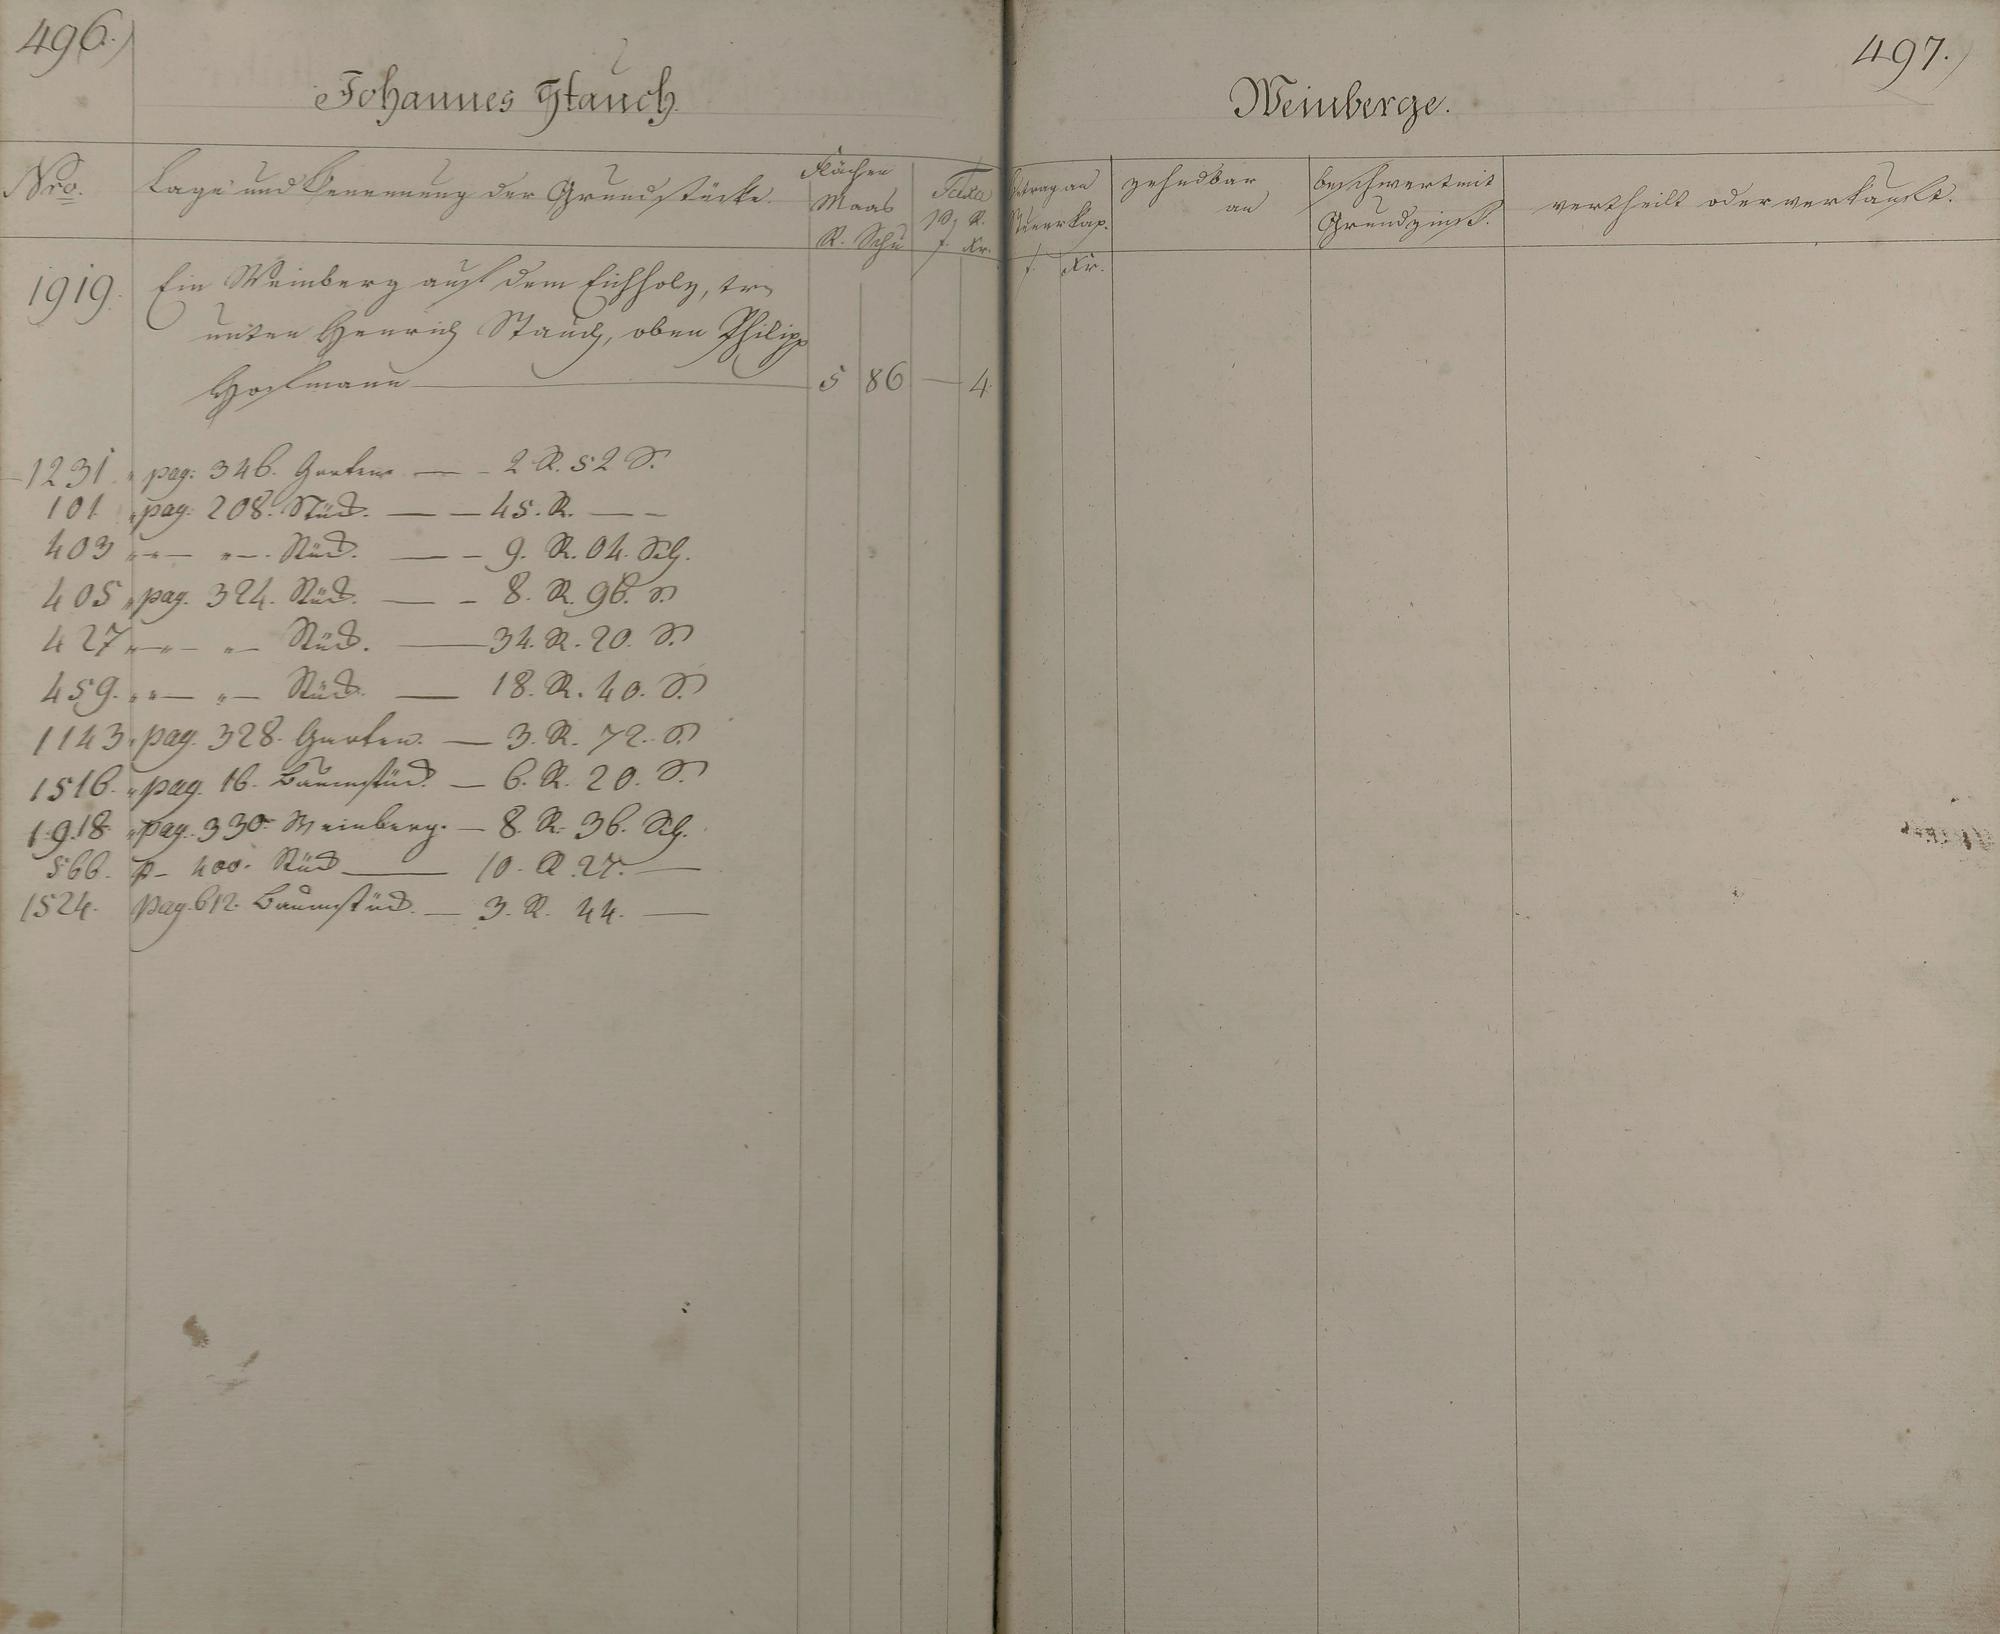 496.)
Johannes Stauch.
Nro.
Lage und Benennung der Grundstücke.
Flächen
Maas
R. Schu
Taxa
p. R.
f. Kr.
1919. Ein Weinberg auf dem Eichholz,
unten Henrich Stauch, oben Philipp
Hoffmann — 5 86 — 4.
1231. " pag: 346. Garten — - 2 R. 52 S.
101. " pag. 208. Stück. — — 45. R. — —
403 " " — " —. Stück. — - 9. R. 04. Sch.
405 " pag. 324. Stück. — - 8. R. 96. S.
427 " — " — " — Stück. — 34. R. 20. S.
459. " " — " — Stück. — 18. R. 40. S.
1143. " pag. 328. Garten. — 3. R. 72. S.
1516. " pag. 16. Baumstück. — 6. R. 20. S.
1918. " pag. 330. Weinberg. — 8. R. 36. Sch.
566. p — 400. Stück — 10. R. 27. —
1524. pag. 612. Baumstück. — 3. R. 44. —
497.)
Weinberge.
Betrag an
Steuerkap.
f. Kr.
zehndbar
an
beschwert mit
Grundzinß.
vertheilt oder verkauft.